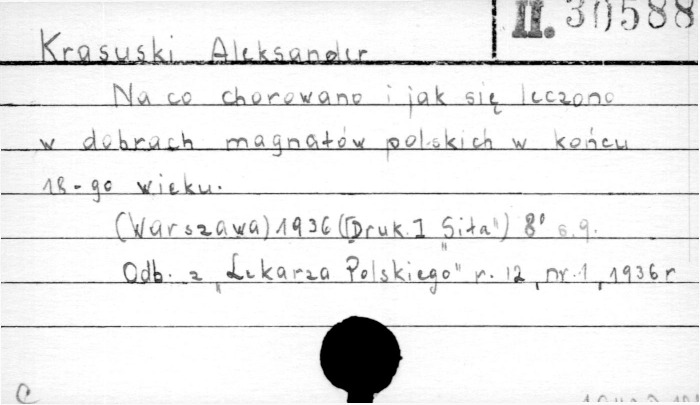 II. 30588
Krasuski Aleksander
Na co chorowano i jak się leczono
w dobrach magnatów polskich w końcu
18-go wieku.
(Warszawa) 1936 ([Druk. I Siła") 8° s. 9.
Odb. z „Lekarza Polskiego" r. 12, nr. 1, 1936 r
C